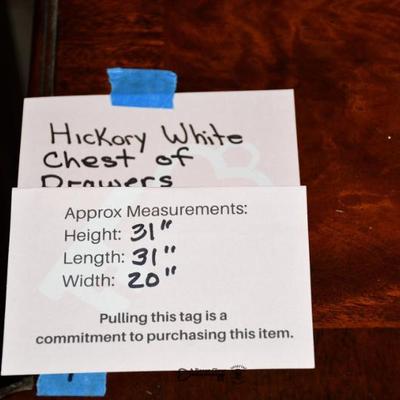 Hickory White
Chest of
Drawers
Approx Measurements:
Height: 31"
Length: 31"
Width: 20"
Pulling this tag is a
commitment to purchasing this item.